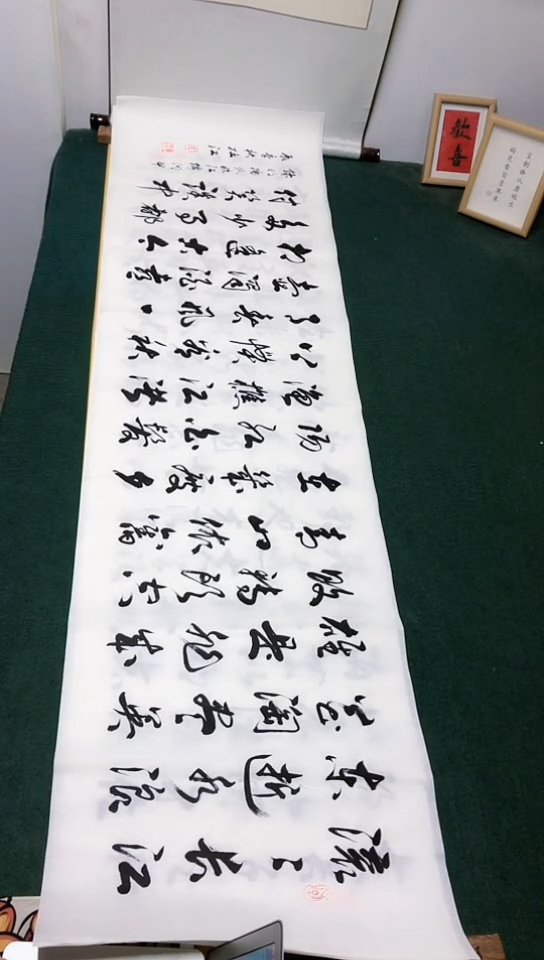 滚〻长江
东逝水浪
花淘尽英
雄是非成
败转头空
青山依舊
在几度夕
阳红白髮
渔樵江渚
上惯看秋
月春风一
壶浊酒喜
相逢古今
多少事都
付笑谈中
歡喜